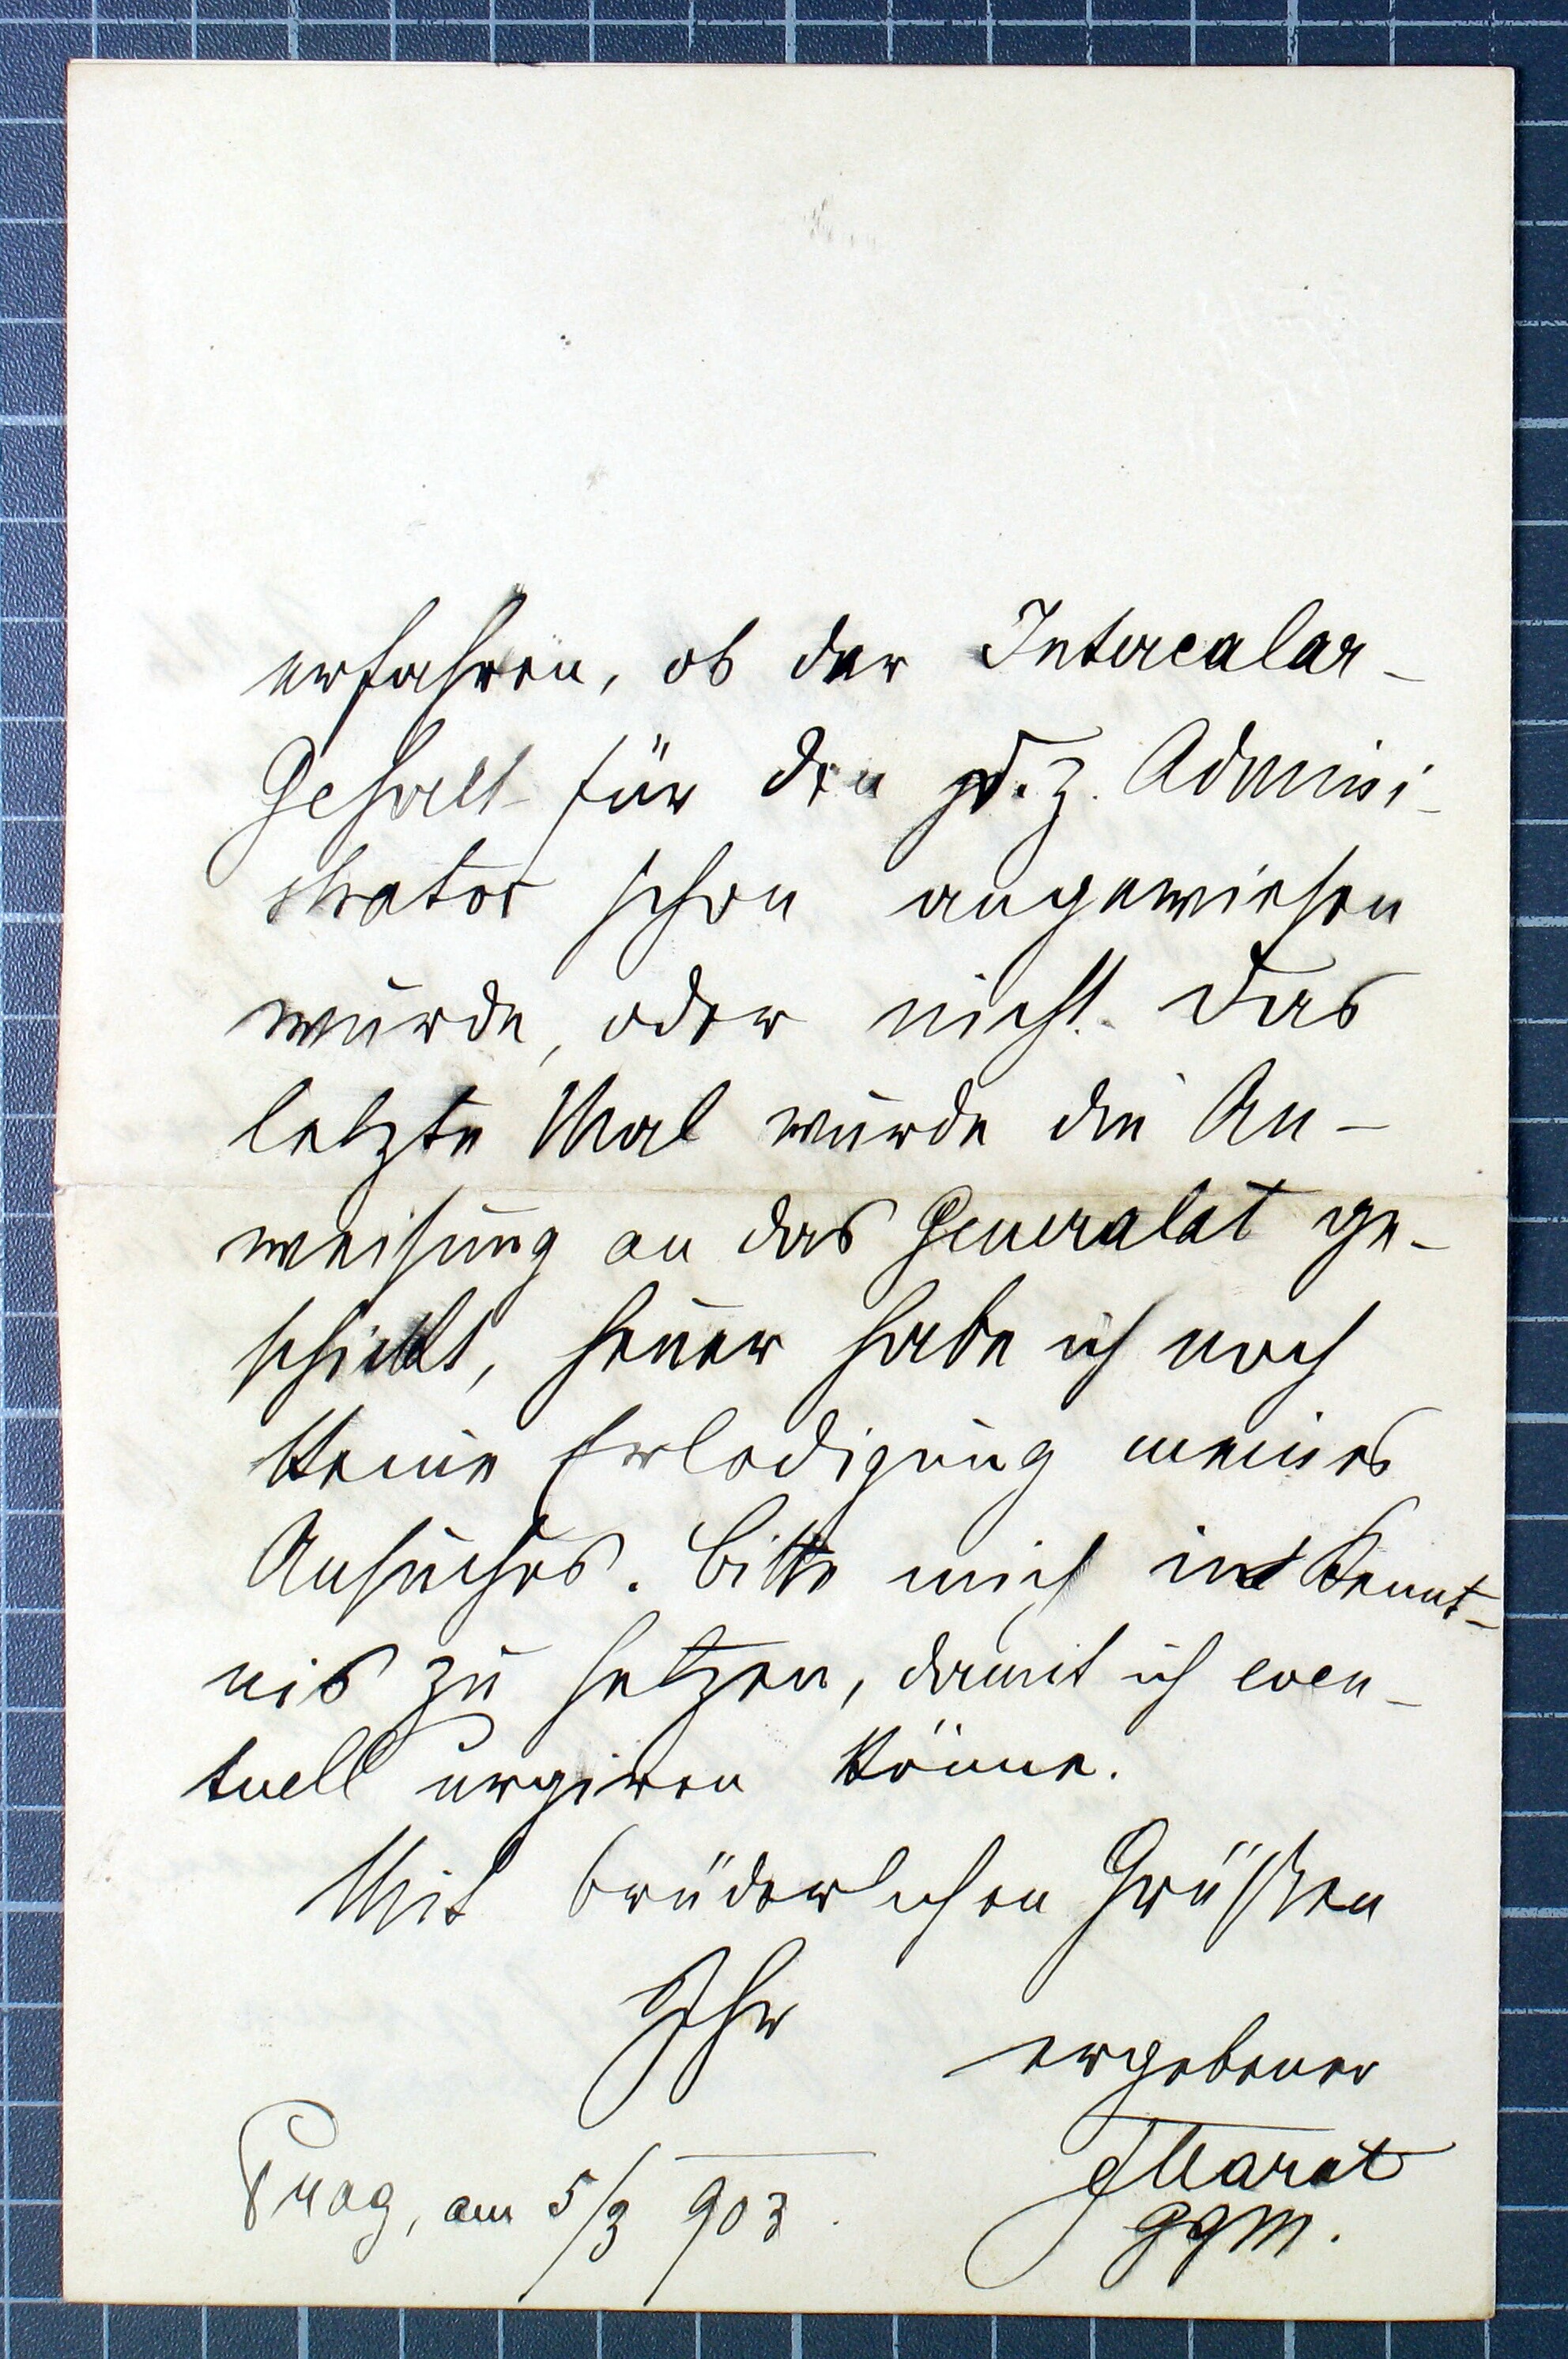 erfahren, ob der Intercalar-
Gehalt für den p. Z. Admini-
strator schon angewiesen
wurde, oder nicht. Das
letzte Mal wurde die An-
weisung an das Generalat ge-
schickt, heuer habe ich noch
keine Erledigung meines
Ansuchens. Bitte mich in Kennt-
nis zu setzen, damit ich even-
tuell urgiren könne.
Mit brüderlichen Grüßen
Ihr
ergebener
Marat
ggm.
Prag, am 5/3 903.